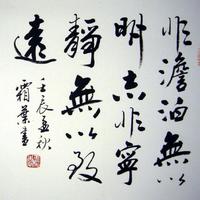 非澹泊無以
明志非寧
靜無以致
遠
壬辰孟秋
霜葉書